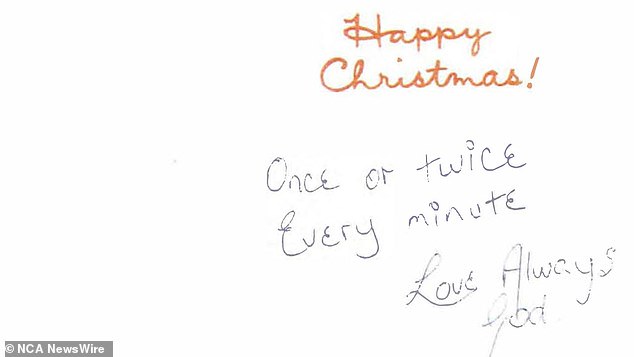 Happy
Christmas!
Once or twice
Every minute
Love Always
God
© NCA NewsWire